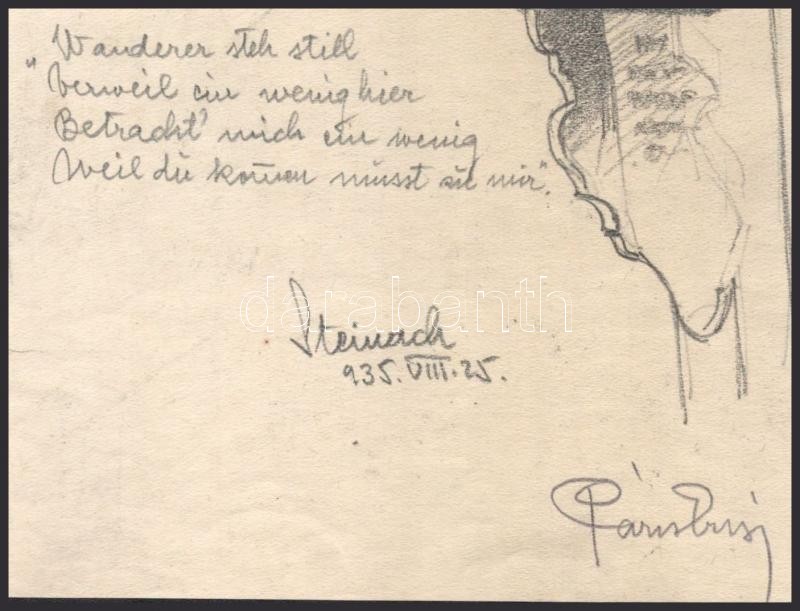 Wanderer steh still
"Verweil ein wenig hier
Betracht' mich ein wenig
Weil du kom̄en musst zu mir".
darabanth
Steinach
935. VIII. 25.
Páris Erzsi